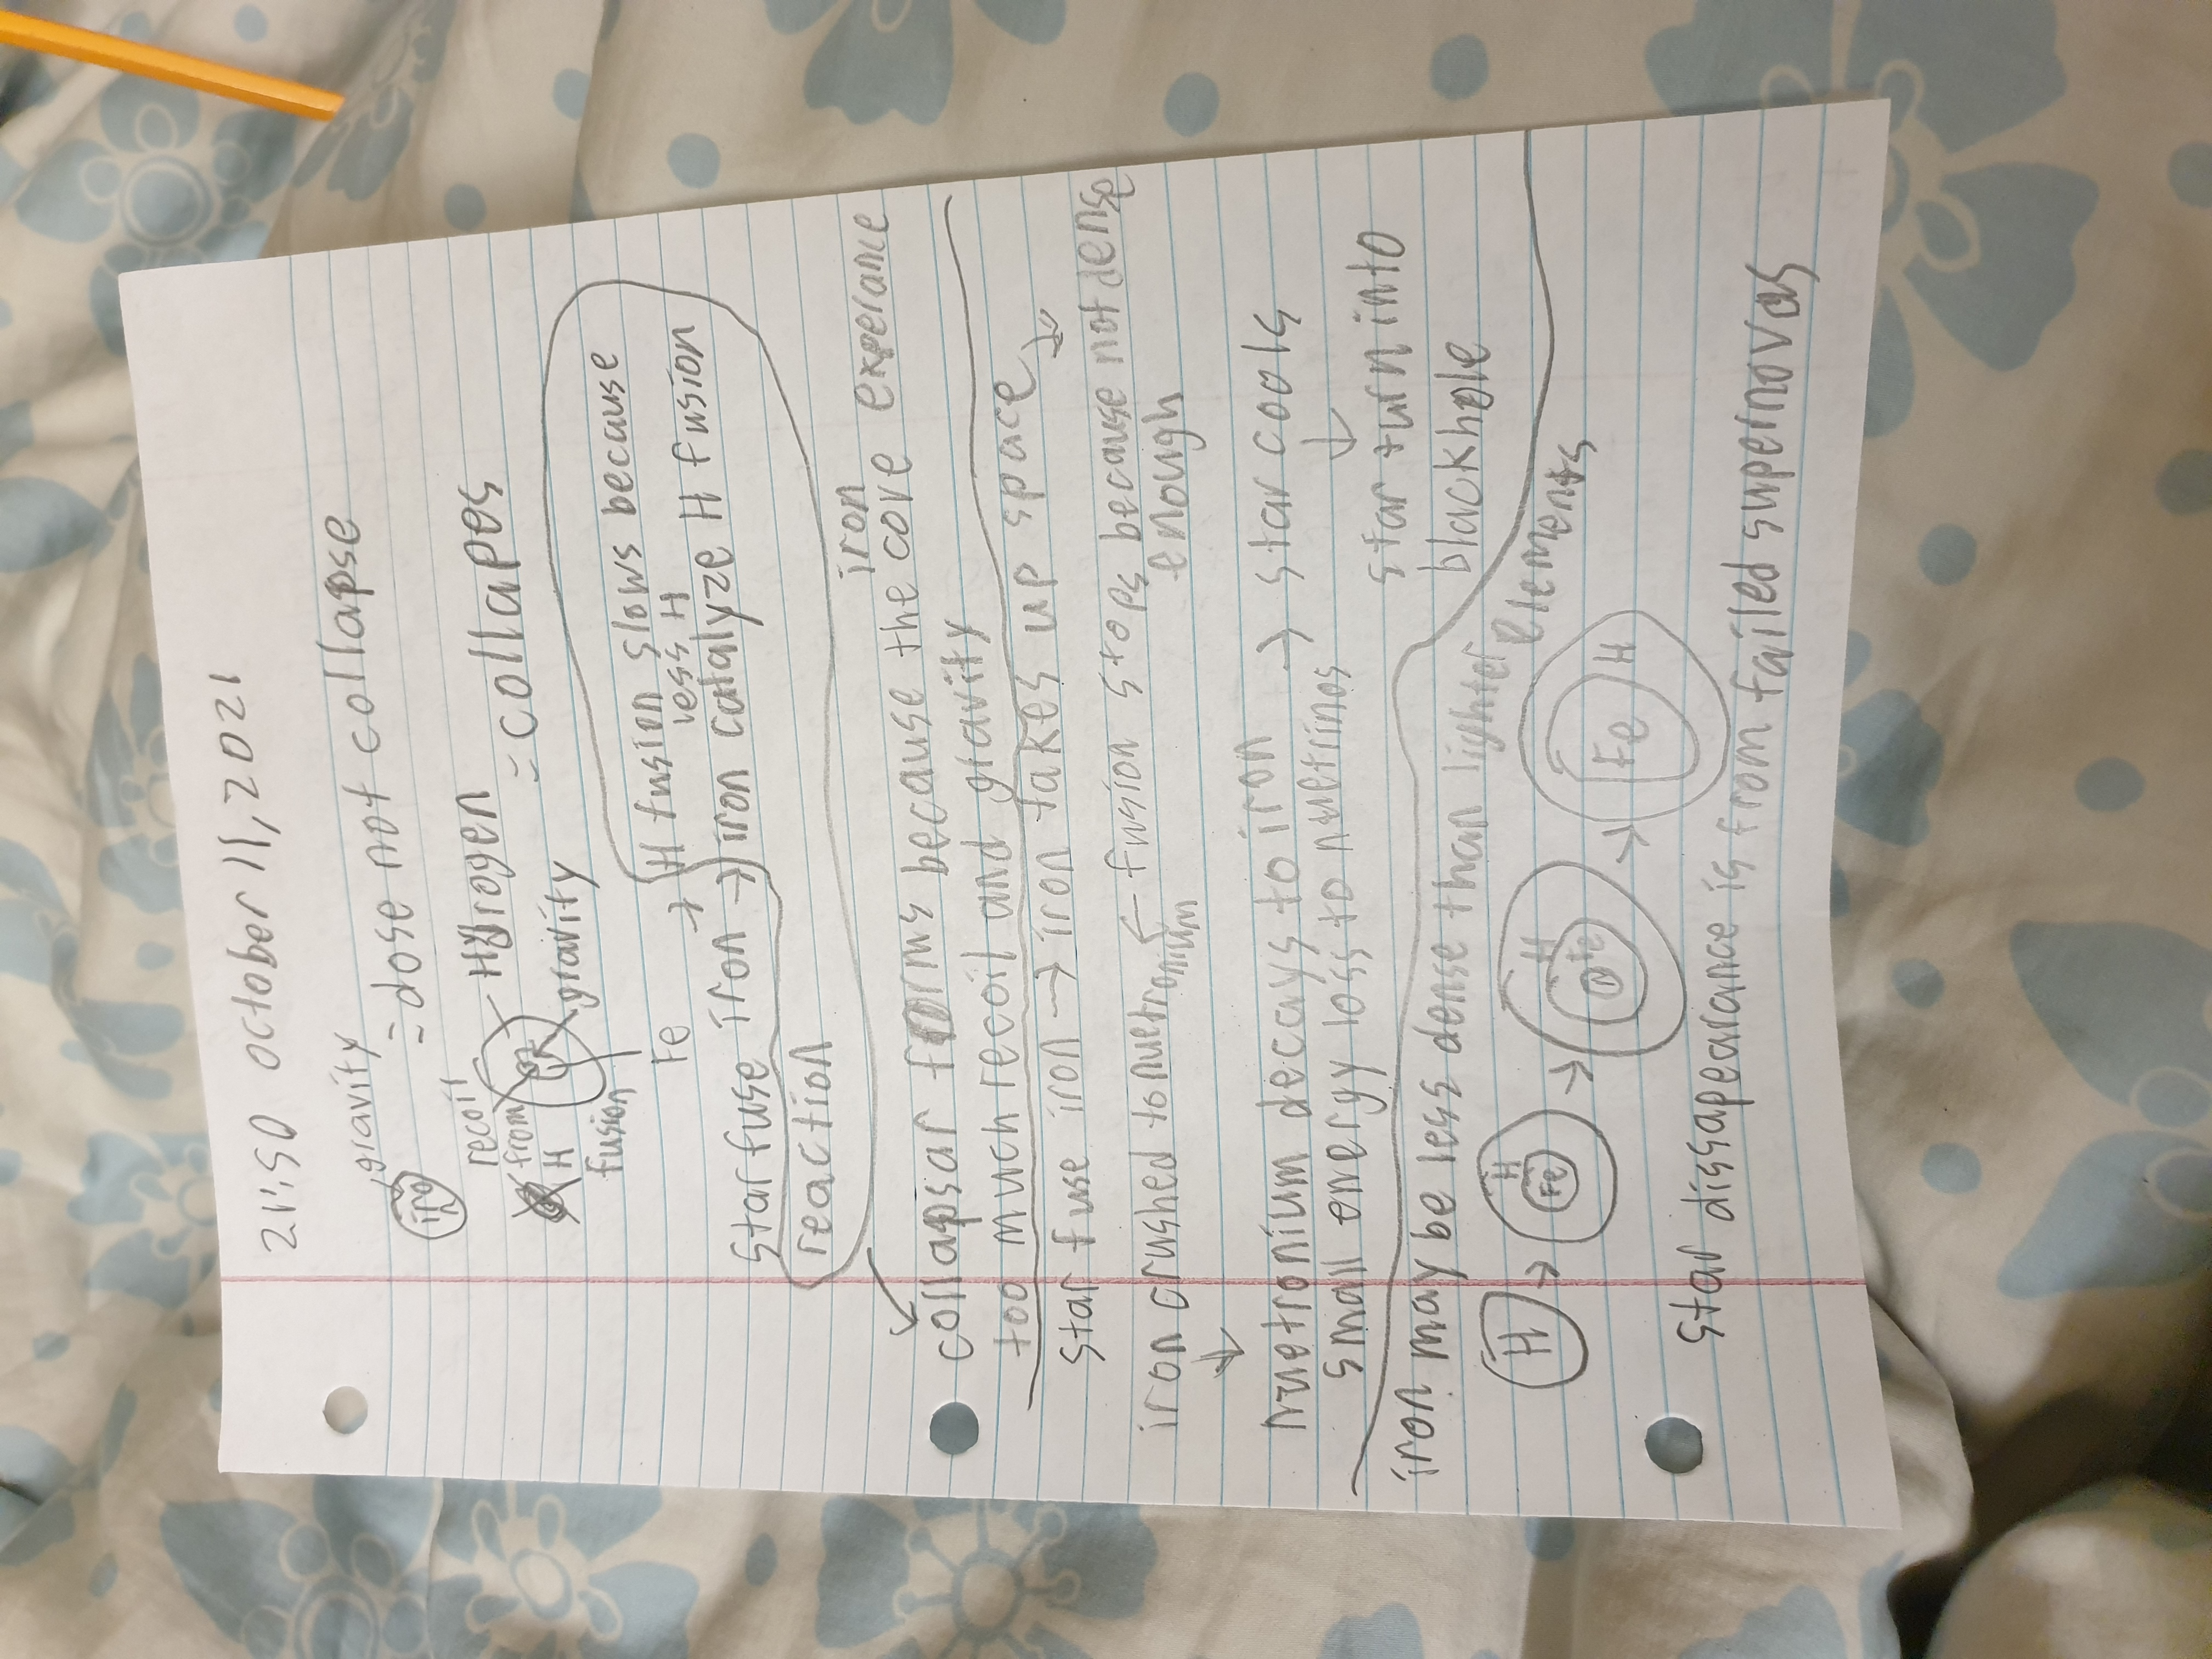 21:50 october 11, 2021
gravity
iron
= dose not collapse
recoil
from
H
fusion
Hydrogen
gravity
= collapes
Fe
→ H fusion slows because
less H
star fuse iron → iron catalyze H fusion
reaction
iron
collapsar forms because the core experance
too much recoil and gravity
star fuse iron → iron takes up space →
iron crushed to nuetronium ← fusion stops because not dense
enough
nuetronium decays to iron → star cools
small energy loss to nuetrinos
star turn into
blackhole
iron may be less dense than lighter elements
H → H Fe → H Fe N → Fe H
star dissapearance is from failed supernovas